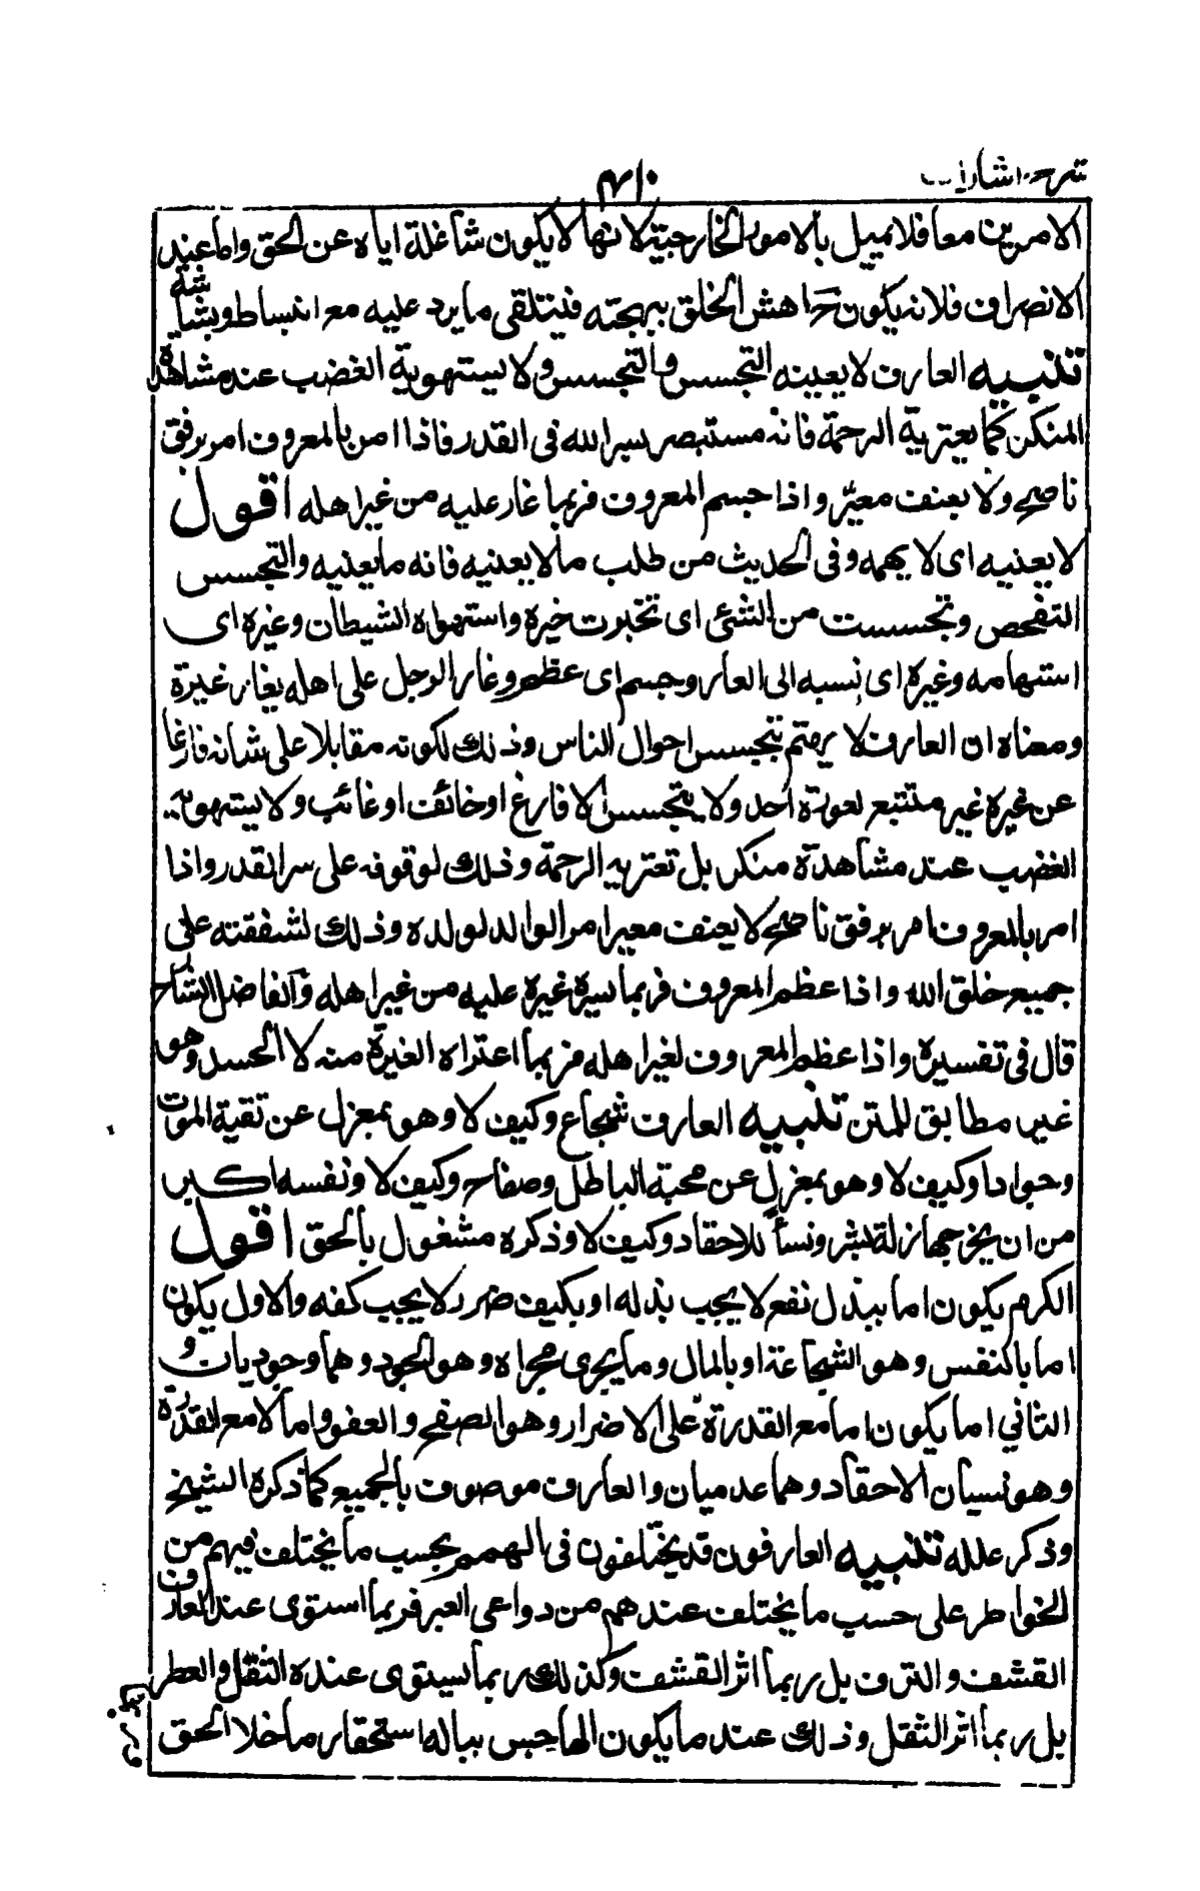 شرح اشارات
٤١٠
الامرين معا فلا يميل بالامور الخارجية لانها لا يكون شاغلة اياه عن الحق واما عند
الانصراف فلانه يكون ح اهش الخلق ببهجته فيتلقى ما يرد عليه مع انبساط وبشاشة
تنبيه العارف لا يعينه التجسس والتحسس ولا يستهويه الغضب عند مشاهدة
المنكر كما يعتريه الرحمة فانه مستبصر بسر الله فى القدر فاذا امر بالمعروف امر برفق
ناصح ولا بعنف معيّر واذا جسم المعروف فربما غار عليه من غير اهله اقول
لا يعنيه اى لا يهمه وفى الحديث من طلب ما لا يعنيه فاته ما يعنيه والتجسس
التفحص وتجسست من الشئ اى تخبرت خبره واستهواه الشيطان وغيره اى
استهامه وغيره اى نسبه الى العار وجسم اى عظم وغار الرجل على اهله يغار غيرة
ومعناه ان العارف لا يهتم بتجسس احوال الناس وذلك لكونه مقابلا على شانه فارغا
عن غيره غير متتبع لعورة احد ولا يتجسس الا فارغ او خائف او غائب ولا يستهويه
الغضب عند مشاهدة منكر بل تعتريه الرحمة وذلك لوقوفه على سر القدر واذا
امر بالمعروف امر برفق ناصح لا بعنف معير امر الوالد لولده وذلك لشفقته على
جميع خلق الله واذا عظم المعروف فربما سيره غيرة عليه من غير اهله والفاضل الشارح
قال فى تفسيره واذا عظم المعروف لغير اهله فربما اعتراه الغيرة منه لا الحسد وهو
غير مطابق للمتن تنبيه العارف شجاع وكيف لا وهو بمعزل عن تقية الموت
وجواد وكيف لا وهو بمعزل عن محبة الباطل وصفاح وكيف لا ونفسه اكبر
من ان يخرجها زلة بشر ونساء للاحقاد وكيف لا وذكره مشغول بالحق اقول
الكرم يكون اما ببذل نفع لا يجب بذله او بكيف ضرر لا يجب كفه والاول يكون
اما بالنفس وهو الشجاعة او بالمال وما يجرى مجراه وهو الجود وهما وجوديات و
الثاني اما يكون اما مع القدرة على الاضرار وهو الصفح والعفو واما لا مع القدرة
وهو نسيان الاحقاد وهما عدميان والعارف موصوف بالجميع كما ذكره الشيخ
وذكر علله تنبيه العارفون قد يختلفون فى الهمم بحسب ما يختلف فيهم من
الخواطر على حسب ما يختلف عندهم من دواعى العبر فربما استوى عند العارف
القشف والترف بل ربما اثر القشف وكذلك ربما سيتوى عنده التفل والعطر
بل ربما اثر التفل وذلك عند ما يكون الهاجس بباله استحقار ما خلا الحق